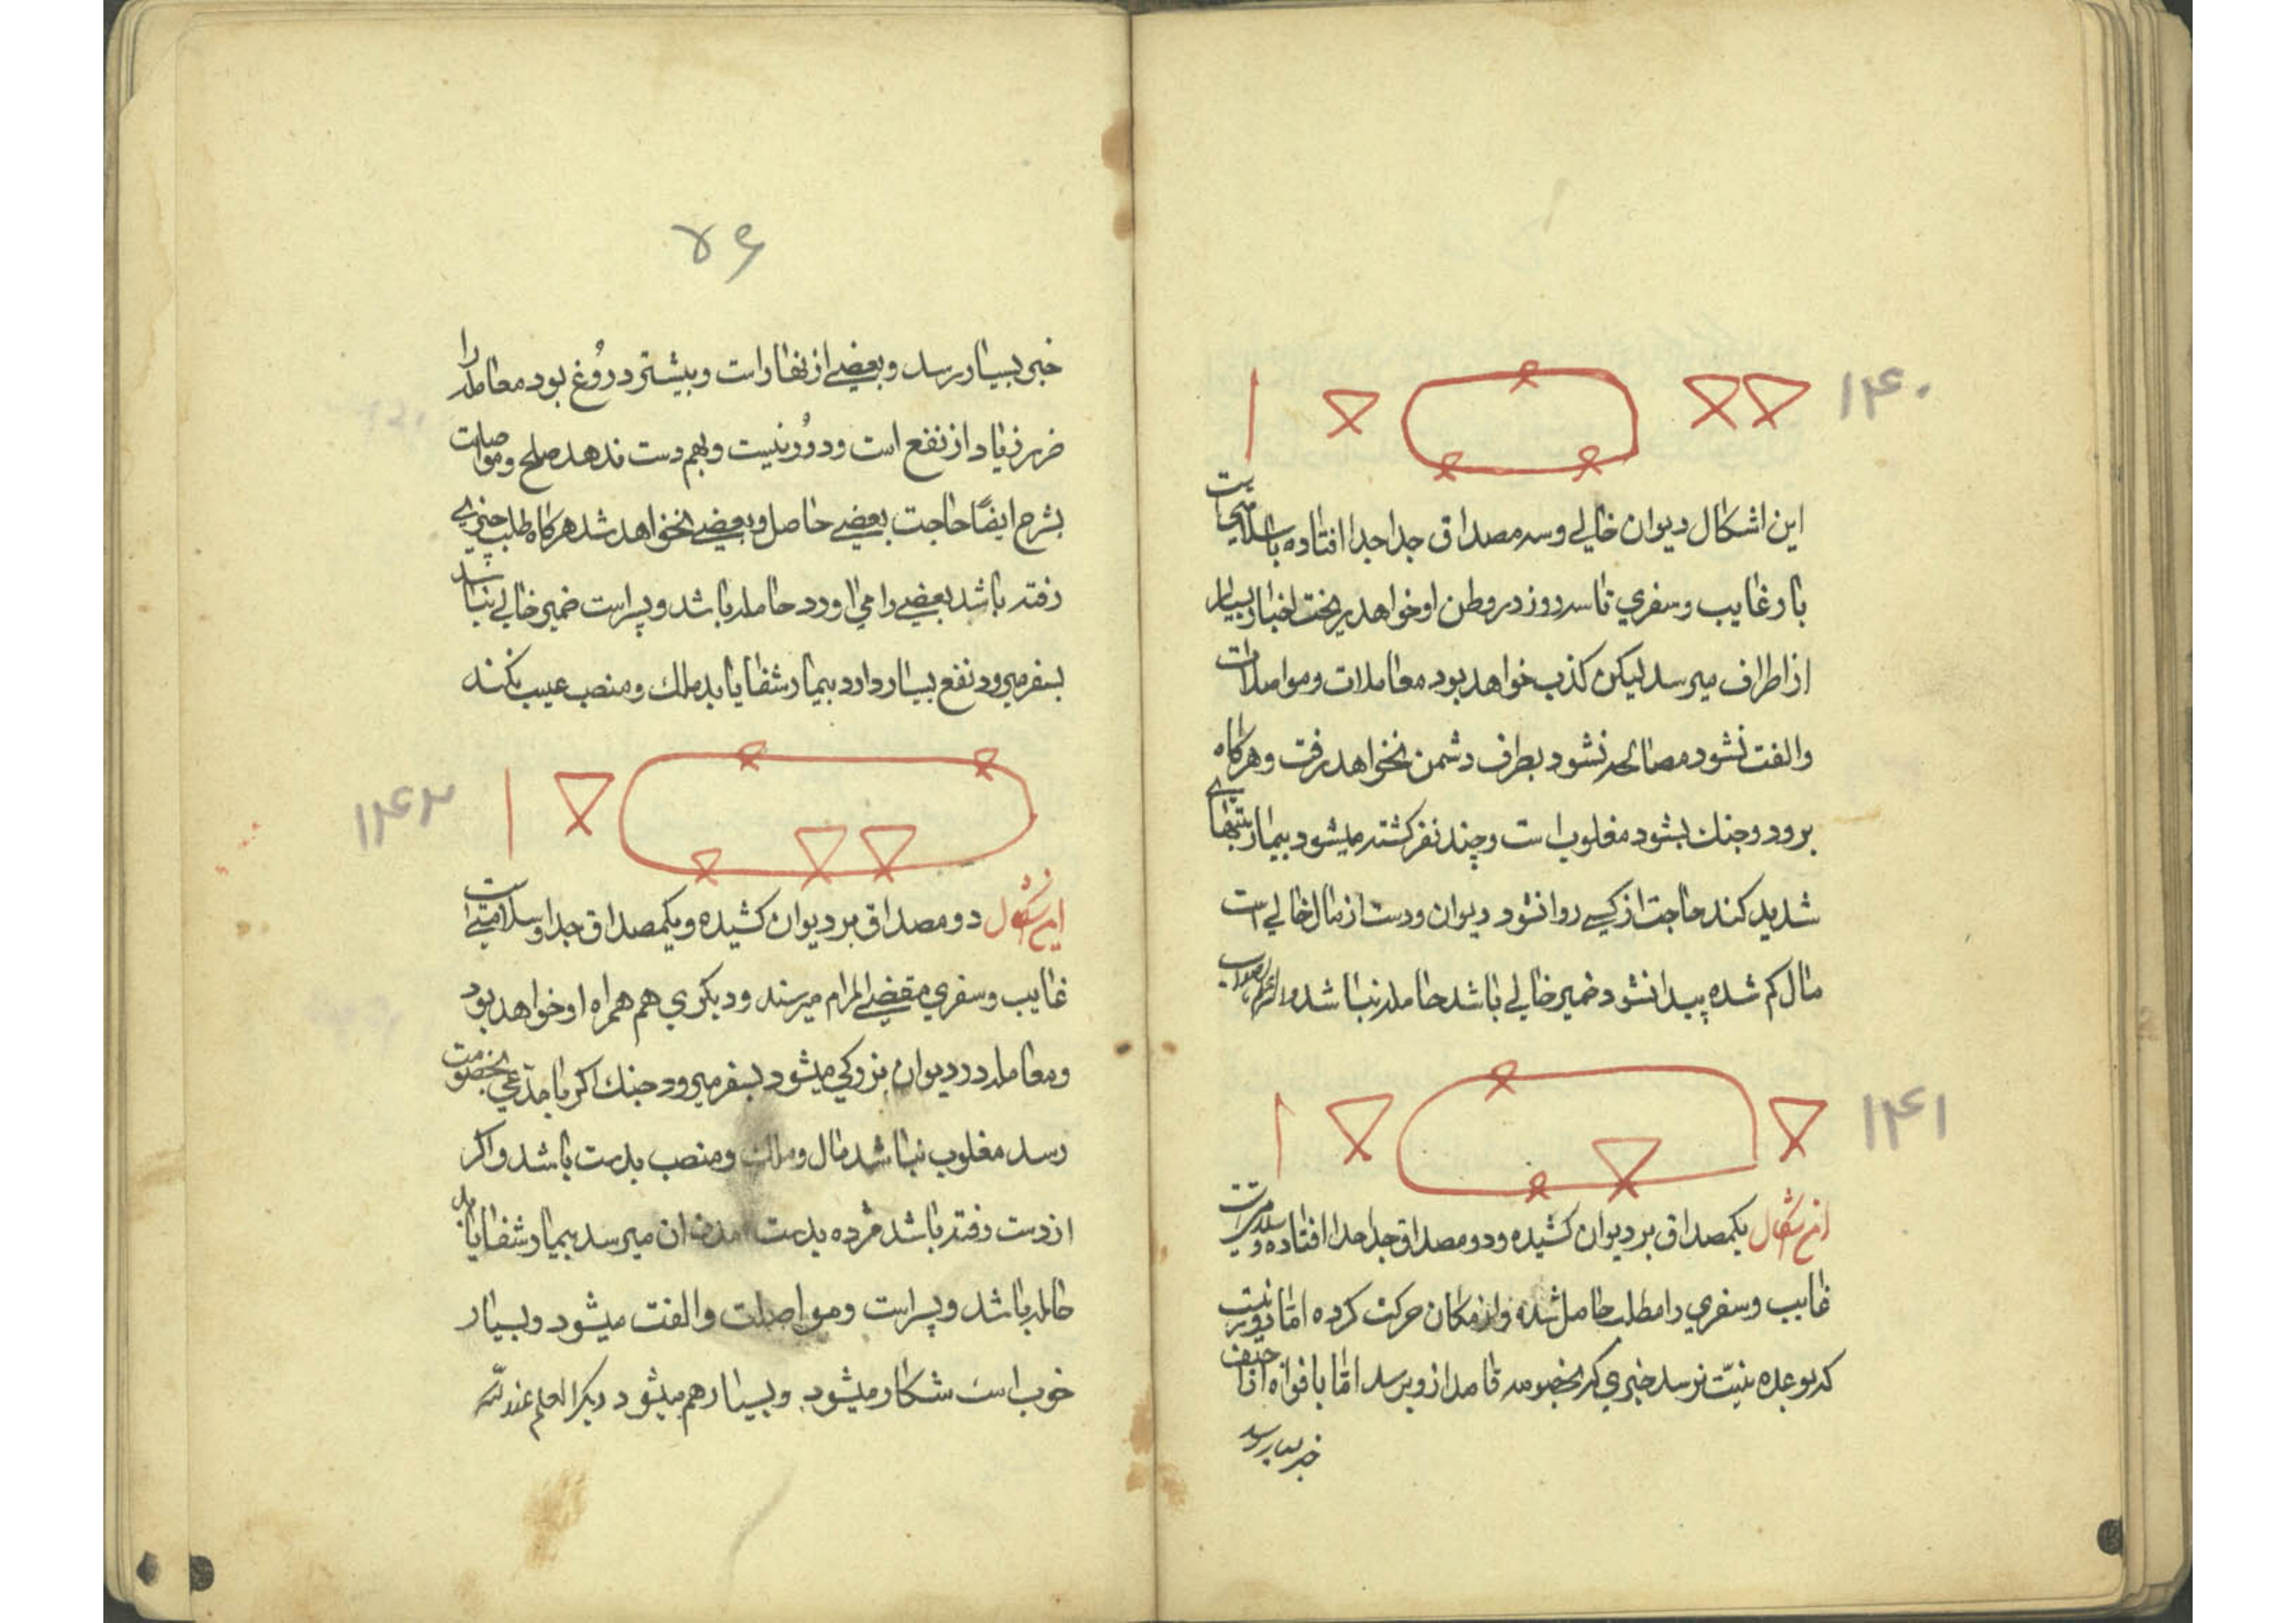 ۱۴۰
این اشکال دیوان خالی و سه مصداق جدا جدا افتاده با سلامتی است
بار غایب و سفری تا سه روز در وطن او خواهد ریخت اخبار بسیار
از اطراف میرسد لیکن کذب خواهد بود معاملات و مواصلات
والفت نشود مصالحه نشود بطرف دشمن نخواهد رفت و هرکاه
برود و جنك بشود مغلوب است و چند نفر کشته میشود بیمار تبهای
شدید کند حاجت از کسی روا نشود دیوان و دست از مال خالی است
مال کم شده پیدا نشود ضمیر خالی باشد حامله نباشد والله اعلم بالصواب
۱۴۱
این اشکال یکمصداق بر دیوان کشیده و دو مصداق جدا جدا افتاده و
غایب و سفری را مطلب حاصل شده و از مکان حرکت کرده اما
که بوعده نیت نرسد خبری که بخصومه قاصد از و برسد اما بافواه
خبر بسیار رسد
۷۶
خبر بسیار رسد و بعضی از نها راست و بیشتر دروغ بود معامله را
ضرر زیاد از نفع است و دور نیست و بهم دست ندهد صلح و مواصلت
بشرح ایضًا حاجت بعضی حاصل و بعضی نخواهد شد هرکاه طلب چیزی
رفته باشد بعضی را می اورد حامله باشد و پسر است ضمیر خالی نباشد
بسفر میرود نفع بسیار دارد بیمار شفا یابد ملك و منصب عیب نکند
۱۴۲
این اشکال دو مصداق بر دیوان کشیده و یکمصداق جدا و سلامتی است
غایب و سفری مقضی المرام میرسند و دیکری هم همراه او خواهد بود
و معامله در دیوان بزرکی میشود بسفر میرود جنك اکر با مدّعی بخصومت
رسد مغلوب نباشد مال و ملك و منصب بدست باشد و اکر
از دست رفته باشد مژده بدست امدن ان میرسد بیمار شفا یابد
حامله باشد و پسر است و مواصلت والفت میشود و بسیار
خوب است شکار میشود و بسیار هم میشود دیکر العلم عند الله